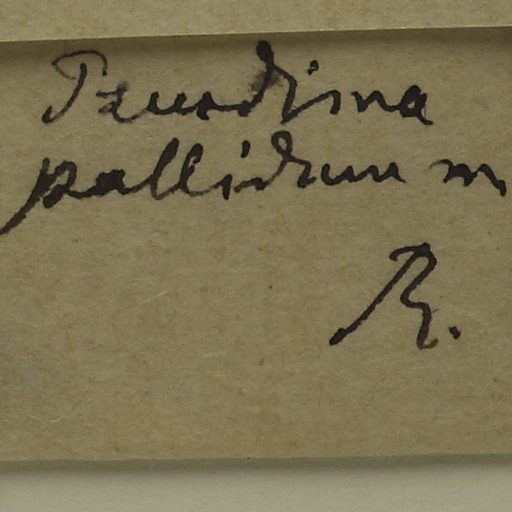 Pseudima
pallidum m
R.